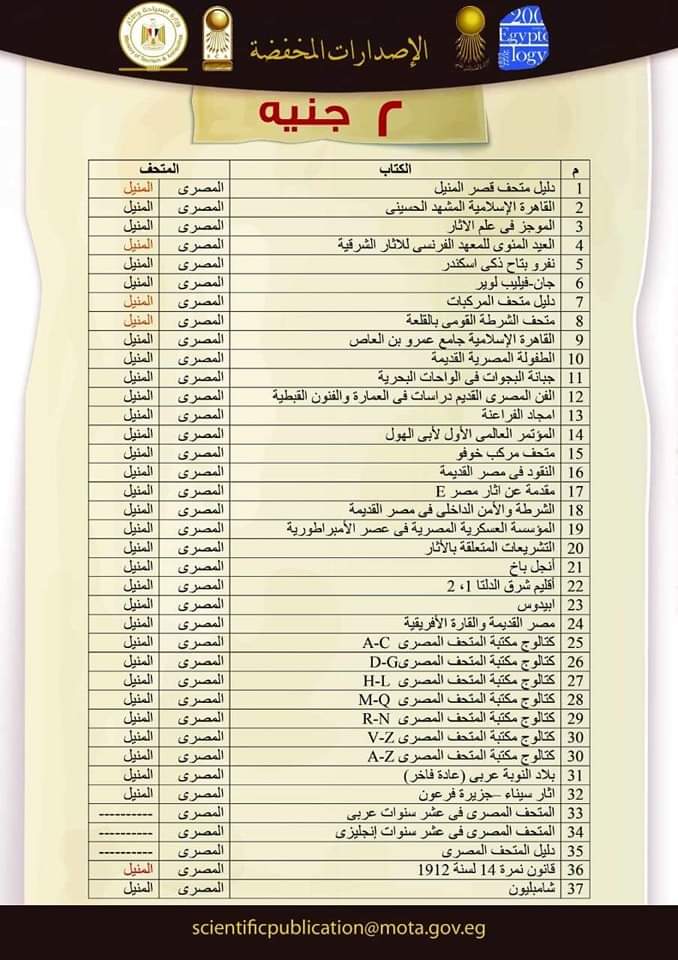 200
Egypto
logy
الإصدارات المخفضة
٢ جنيه
م الكتاب المتحف
1 دليل متحف قصر المنيل المصرى المنيل
2 القاهرة الإسلامية المشهد الحسينى المصرى المنيل
3 الموجز فى علم الاثار المصرى المنيل
4 العيد المئوى للمعهد الفرنسى للاثار الشرقية المصرى المنيل
5 نفرو بتاح ذكى اسكندر المصرى المنيل
6 جان-فيليب لوير المصرى المنيل
7 دليل متحف المركبات المصرى المنيل
8 متحف الشرطة القومى بالقلعة المصرى المنيل
9 القاهرة الإسلامية جامع عمرو بن العاص المصرى المنيل
10 الطفولة المصرية القديمة المصرى المنيل
11 جبانة البجوات فى الواحات البحرية المصرى المنيل
12 الفن المصرى القديم دراسات فى العمارة والفنون القبطية المصرى المنيل
13 امجاد الفراعنة المصرى المنيل
14 المؤتمر العالمى الأول لأبى الهول المصرى المنيل
15 متحف مركب خوفو المصرى المنيل
16 النقود فى مصر القديمة المصرى المنيل
17 مقدمة عن اثار مصر E المصرى المنيل
18 الشرطة والأمن الداخلى فى مصر القديمة المصرى المنيل
19 المؤسسة العسكرية المصرية فى عصر الأمبراطورية المصرى المنيل
20 التشريعات المتعلقة بالأثار المصرى المنيل
21 أنجل باخ المصرى المنيل
22 أقليم شرق الدلتا 1، 2 المصرى المنيل
23 ابيدوس المصرى المنيل
24 مصر القديمة والقارة الأفريقية المصرى المنيل
25 كتالوج مكتبة المتحف المصرى A-C المصرى المنيل
26 كتالوج مكتبة المتحف المصرىD-G المصرى المنيل
27 كتالوج مكتبة المتحف المصرى H-L المصرى المنيل
28 كتالوج مكتبة المتحف المصرى M-Q المصرى المنيل
29 كتالوج مكتبة المتحف المصرى R-N المصرى المنيل
30 كتالوج مكتبة المتحف المصرى V-Z المصرى المنيل
30 كتالوج مكتبة المتحف المصرى A-Z المصرى المنيل
31 بلاد النوبة عربى (عادة فاخر) المصرى المنيل
32 اثار سيناء –جزيرة فرعون المصرى المنيل
33 المتحف المصرى فى عشر سنوات عربى المصرى ----------
34 المتحف المصرى فى عشر سنوات إنجليزى المصرى ----------
35 دليل المتحف المصرى المصرى ----------
36 قانون نمرة 14 لسنة 1912 المصرى المنيل
37 شامبليون المصرى المنيل
scientificpublication@mota.gov.eg